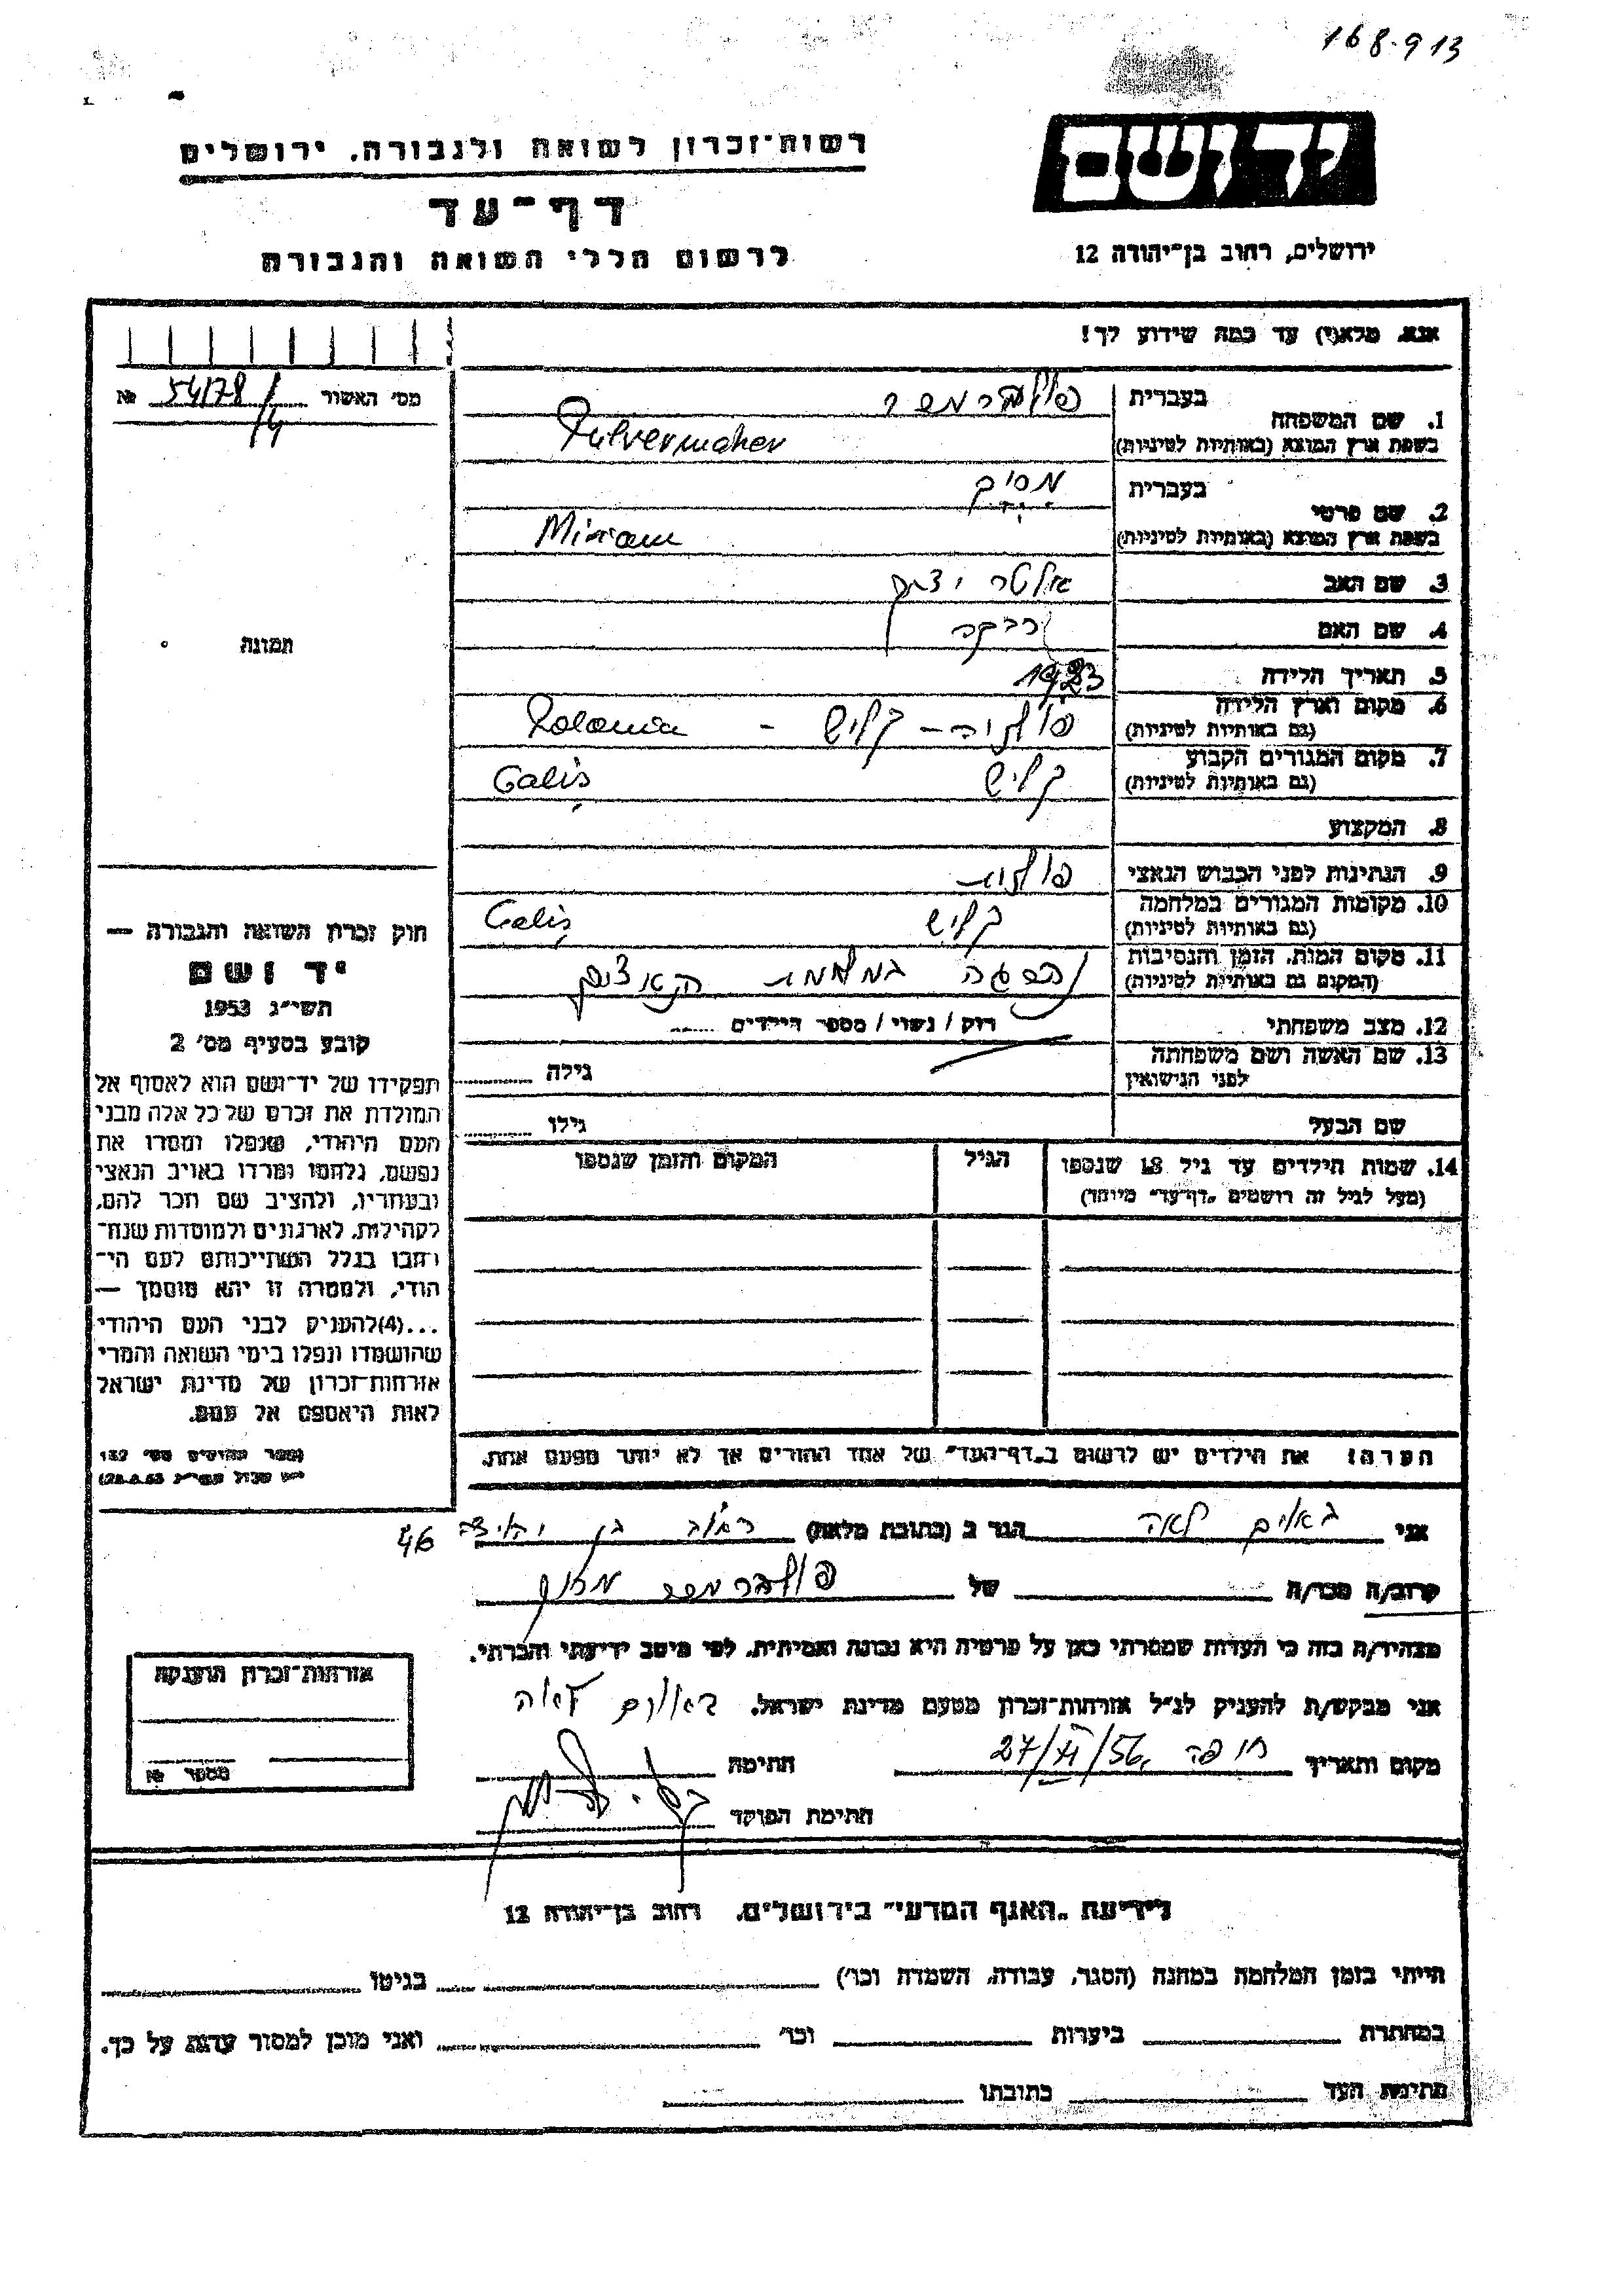 168.913
יד ושם
רשות־זכרון לשואה ולגבורה. ירושלים
דף־עד
לרשום חללי השואה והגבורה
ירושלים, רחוב בן־יהודה 12
אנא, מלא(י) עד כמה שידוע לך!
מס' האשור 54178/ №
14
1. שם המשפחה
בעברית פולברמכר
בשפת ארץ המוצא (באותיות לטיניות) Pulvermacher
2. שם פרטי
בעברית מרים
בשפת ארץ המוצא (באותיות לטיניות) Miriam
3. שם האב אלטר יצחק
4. שם האם רבקה
5. תאריך הלידה 1923
6. מקום וארץ הלידה פולניה – קליש – Polania
(גם באותיות לטיניות)
7. מקום המגורים הקבוע קליש Caliş
(גם באותיות לטיניות)
8. המקצוע
9. הנתינות לפני הכבוש הנאצי פולנית
10. מקומות המגורים במלחמה קליש Caliş
(גם באותיות לטיניות)
11. מקום המות, הזמן והנסיבות נספה במלחמת הנאצים
(המקום גם באותיות לטיניות)
12. מצב משפחתי רווק / נשוי / מספר הילדים
13. שם האשה ושם משפחתה גילה
לפני הנישואין
שם הבעל גילו
14. שמות הילדים עד גיל 18 שנספו הגיל המקום והזמן שנספו
(מעל לגיל זה רושמים „דף־עד" מיוחד)
תמונה
חוק זכרון השואה והגבורה —
יד ושם
תשי"ג 1953
קובע בסעיף מס' 2
תפקידו של יד־ושם הוא לאסוף אל
המולדת את זכרם של כל אלה מבני
העם היהודי, שנפלו ומסרו את
נפשם, נלחמו ומרדו באויב הנאצי
ובעוזריו, ולהציב שם וזכר להם,
לקהילות, לארגונים ולמוסדות שנח־
רבו בגלל השתייכותם לעם הי־
הודי, ולמטרה זו יהא מוסמך —
...(4) להעניק לבני העם היהודי
שהושמדו ונפלו בימי השואה והמרי
אזרחות־זכרון של מדינת ישראל
לאות היאספם אל עמם.
(ספר החוקים מס' 132
הערה! את הילדים יש לרשום ב„דף־העד" של אחד ההורים אך לא יותר מפעם אחת.
אני באום לאה הגר ב (כתובת מלאה) רחוב בן יהודה 46
קרוב/ה מכר/ה של פולברמכר מרים
מצהיר/ה בזה כי העדות שמסרתי כאן על פרטיה היא נכונה ואמיתית, לפי מיטב ידיעתי והכרתי.
אני מבקש/ת להעניק לנ"ל אזרחות־זכרון מטעם מדינת ישראל. באום לאה
מקום ותאריך חיפה 27/VI/56 חתימה
חתימת הפוקד
אזרחות־זכרון הוענקה
מספר №
לידיעת „האגף המדעי" בירושלים, רחוב בן־יהודה 12
הייתי בזמן המלחמה במחנה (הסגר, עבודה, השמדה וכו') בגיטו
במחתרת ביערות וכו' ואני מוכן למסור עדות על כך.
חתימת העד כתובתו